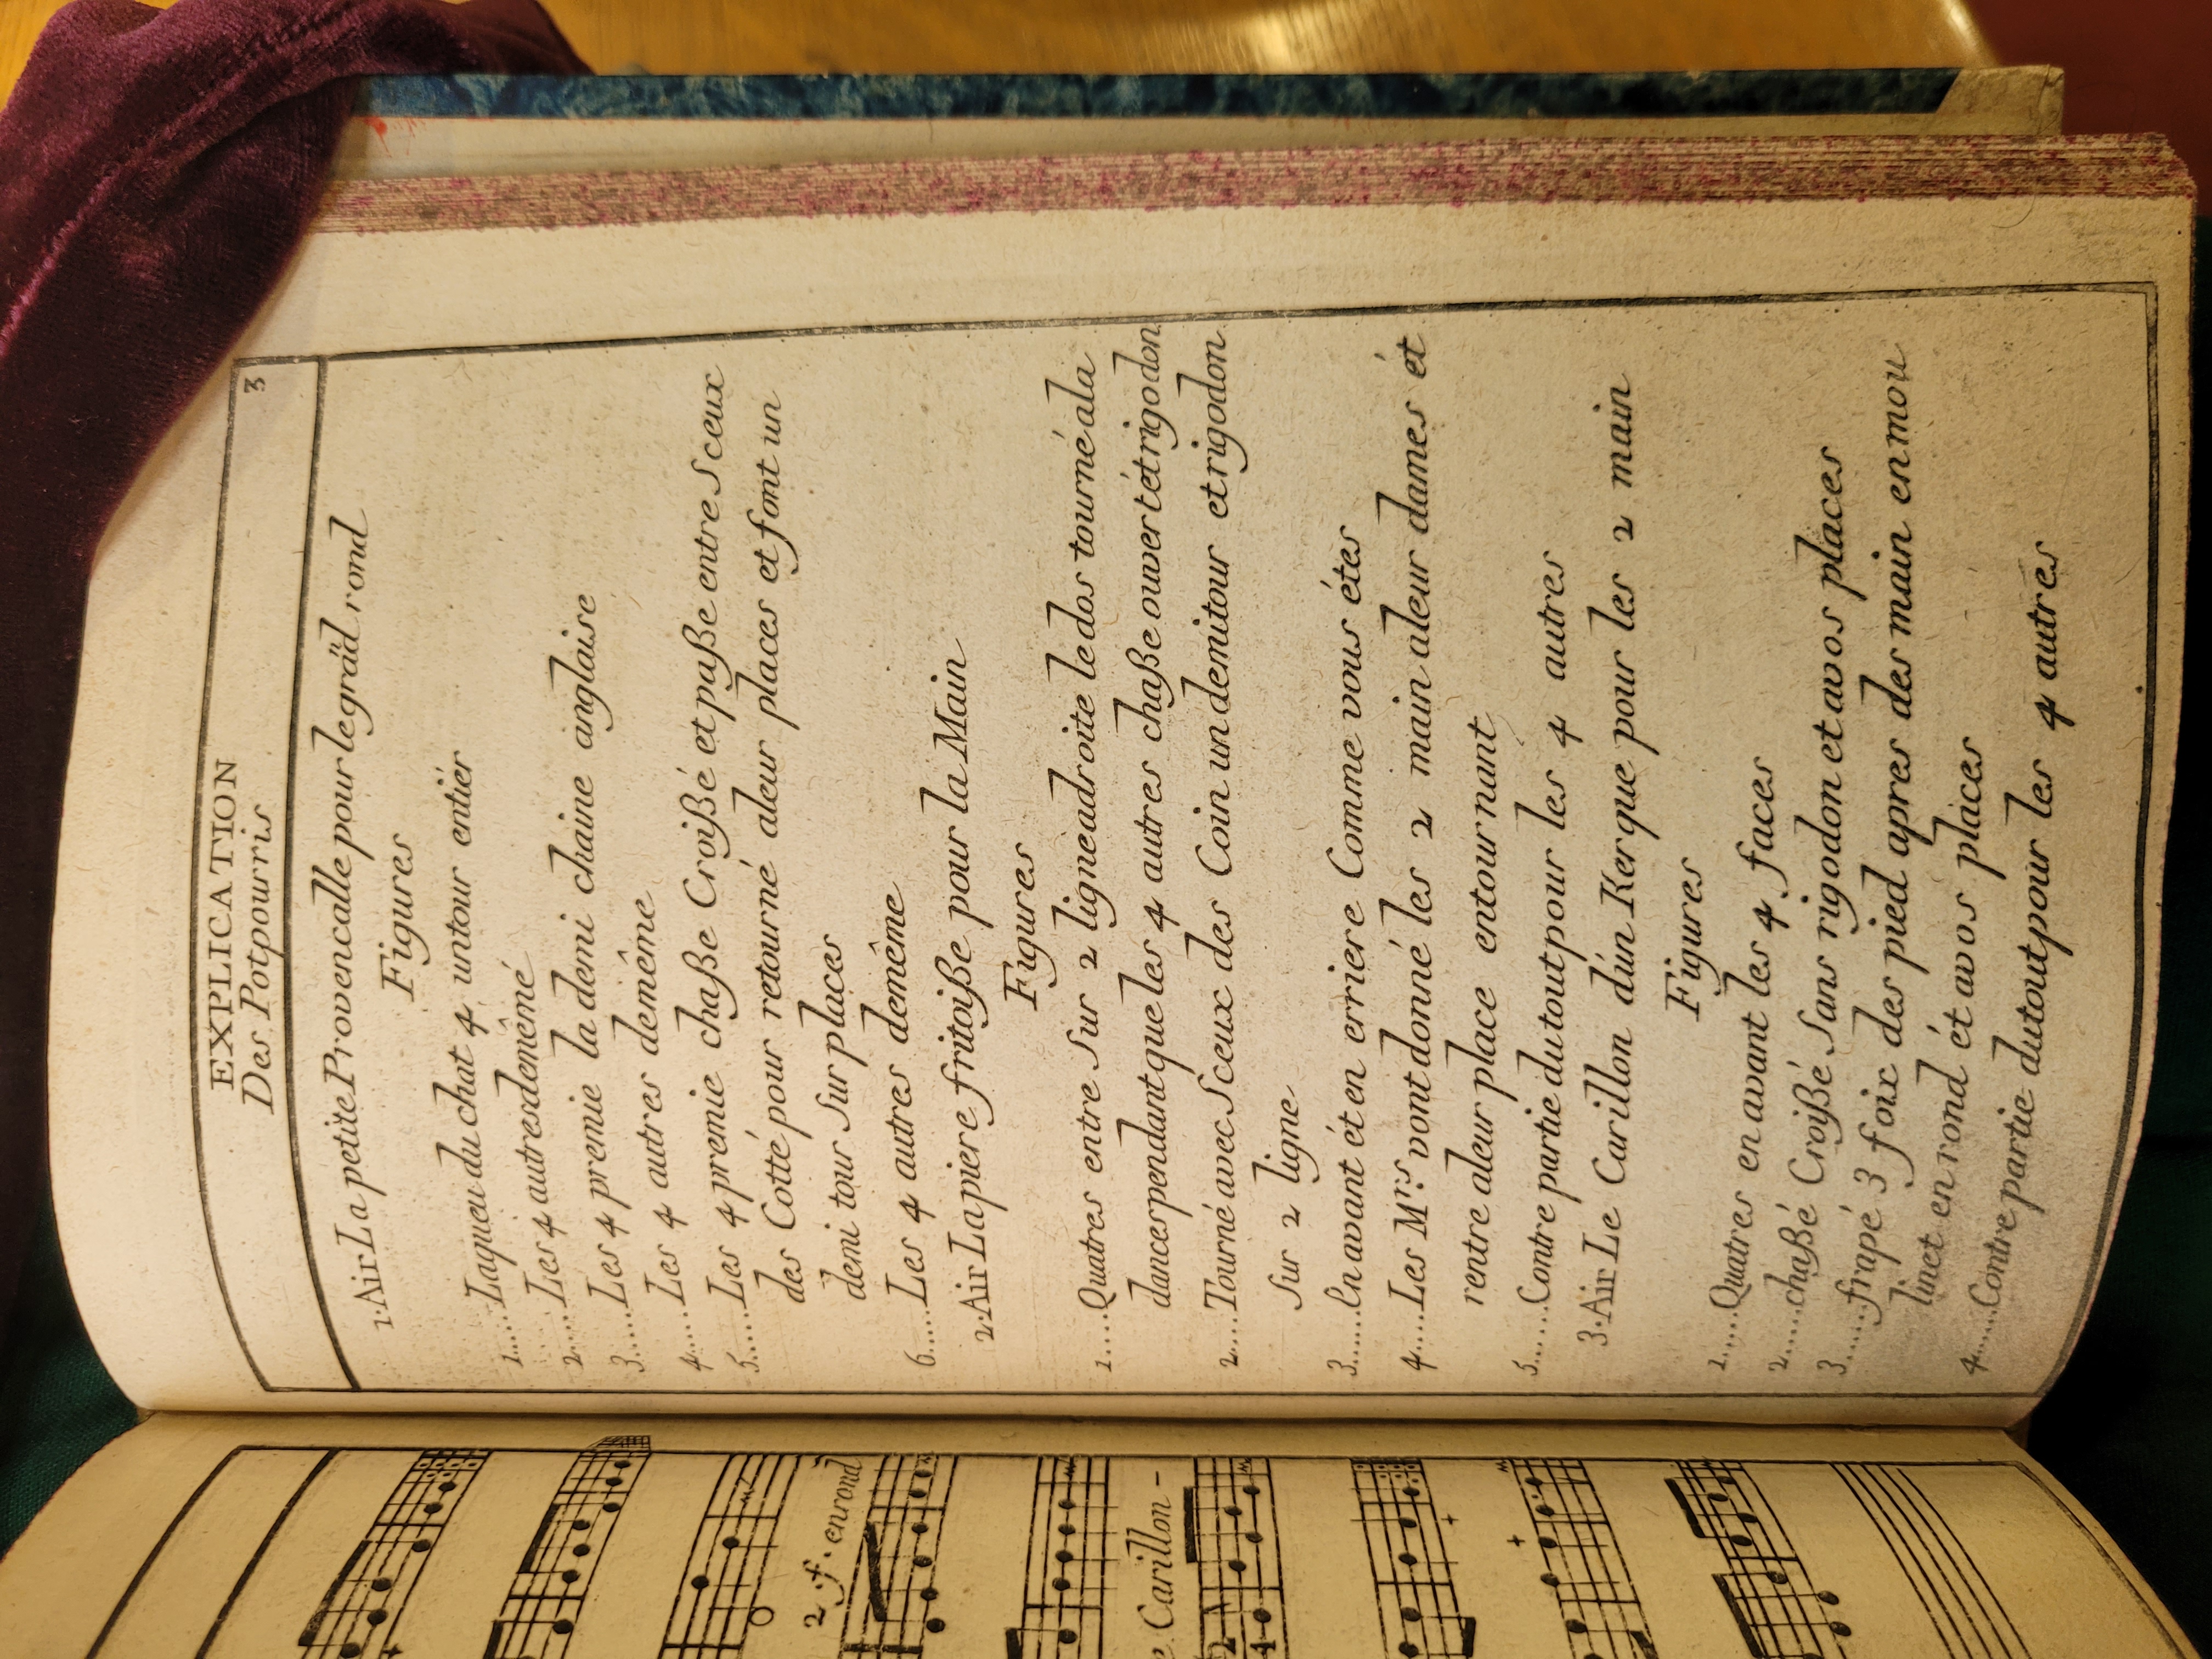 3
EXPLICATION
Des Potpourris
1. Air La petite Provencalle pour legräd rond
Figures
1.....Laqueu du chat 4 untour entiér
2.....Les 4 autresdemêmé
3.....Les 4 premie la demi chaine anglaise
4.....Les 4 autres demême
5.....Les 4 premie chaße Croißé et paße entre Sceux
des Cotté pour retourné aleur places et font un
demi tour Sur places
6.....Les 4 autres demême
2. Air La piere fritoiße pour la Main
Figures
1.....Quatres entre Sur 2 ligneadroite le dos tourné ala
dancespendantque les 4 autres chaße ouvertétrigodon
2.....Tourné avec Sceux des Coin un demitour et rigodon
Sur 2 ligne
3.....En avant ét en erriere Comme vous étes
4.....Les Mrs. vont donné les 2 main aleur dames ét
rentre aleur place entournant
5.....Contre partie dutoutpour les 4 autres
3. Air Le Carillon d'un Kerque pour les 2 main
Figures
1.....Quatres en avant les 4 faces
2.....chaßé Croißé Sans rigodon et avos places
3.....frapé 3 foix des pied apres des main enmou
linet en rond ét avos places
4.....Contre partie dutoutpour les 4 autres
2.f. enrond
Carillon -